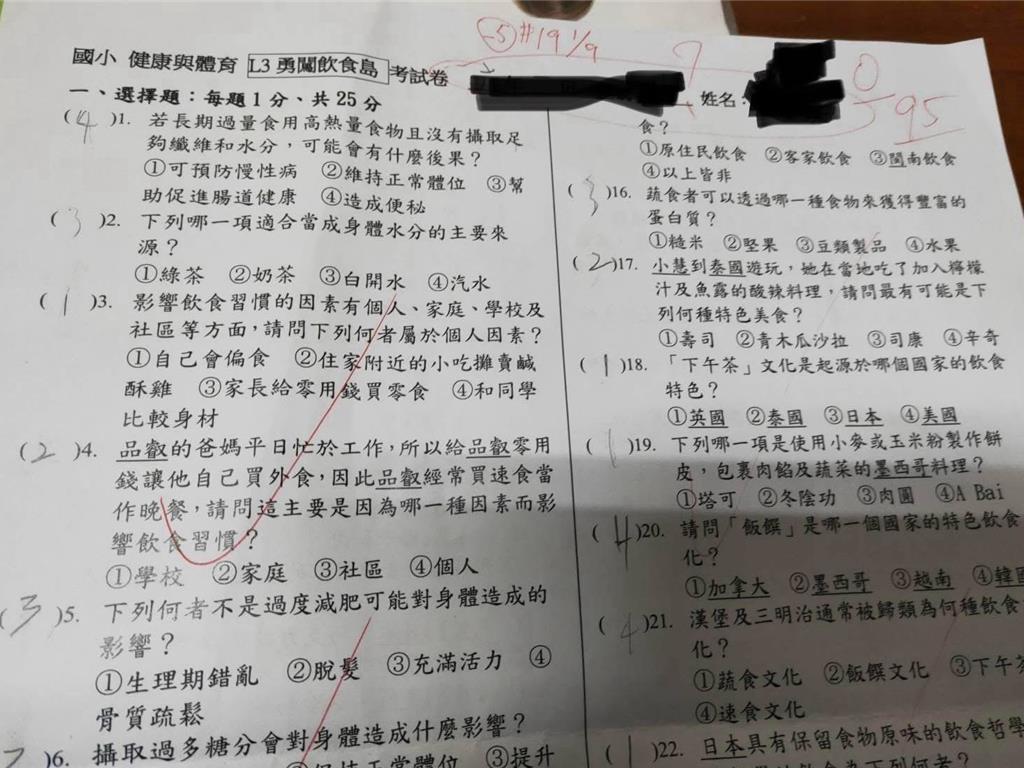 -5 #19 1/9
國小 健康與體育 L3勇闖飲食島 考試卷
姓名:
95
一、選擇題:每題1分、共25分
(4)1. 若長期過量食用高熱量食物且沒有攝取足
夠纖維和水分,可能會有什麼後果?
①可預防慢性病 ②維持正常體位 ③幫
助促進腸道健康 ④造成便秘
(3)2. 下列哪一項適合當成身體水分的主要來
源?
①綠茶 ②奶茶 ③白開水 ④汽水
(1)3. 影響飲食習慣的因素有個人、家庭、學校及
社區等方面,請問下列何者屬於個人因素?
①自己會偏食 ②住家附近的小吃攤賣鹹
酥雞 ③家長給零用錢買零食 ④和同學
比較身材
(2)4. 品叡的爸媽平日忙於工作,所以給品叡零用
錢讓他自己買外食,因此品叡經常買速食當
作晚餐,請問這主要是因為哪一種因素而影
響飲食習慣?
①學校 ②家庭 ③社區 ④個人
(3)5. 下列何者不是過度減肥可能對身體造成的
影響?
①生理期錯亂 ②脫髮 ③充滿活力 ④
骨質疏鬆
)6. 攝取過多糖分會對身體造成什麼影響?
保持正常體位 ③提升
食?
①原住民飲食 ②客家飲食 ③閩南飲食
④以上皆非
(3)16. 蔬食者可以透過哪一種食物來獲得豐富的
蛋白質?
①糙米 ②堅果 ③豆類製品 ④水果
(2)17. 小慧到泰國遊玩,她在當地吃了加入檸檬
汁及魚露的酸辣料理,請問最有可能是下
列何種特色美食?
①壽司 ②青木瓜沙拉 ③司康 ④辛奇
(1)18. 「下午茶」文化是起源於哪個國家的飲食
特色?
①英國 ②泰國 ③日本 ④美國
(1)19. 下列哪一項是使用小麥或玉米粉製作餅
皮,包裹肉餡及蔬菜的墨西哥料理?
①塔可 ②冬陰功 ③肉圓 ④A Bai
(4)20. 請問「飯饌」是哪一個國家的特色飲食
化?
①加拿大 ②墨西哥 ③越南 ④韓國
(4)21. 漢堡及三明治通常被歸類為何種飲食
化?
①蔬食文化 ②飯饌文化 ③下午茶
④速食文化
(1)22. 日本具有保留食物原味的飲食哲學